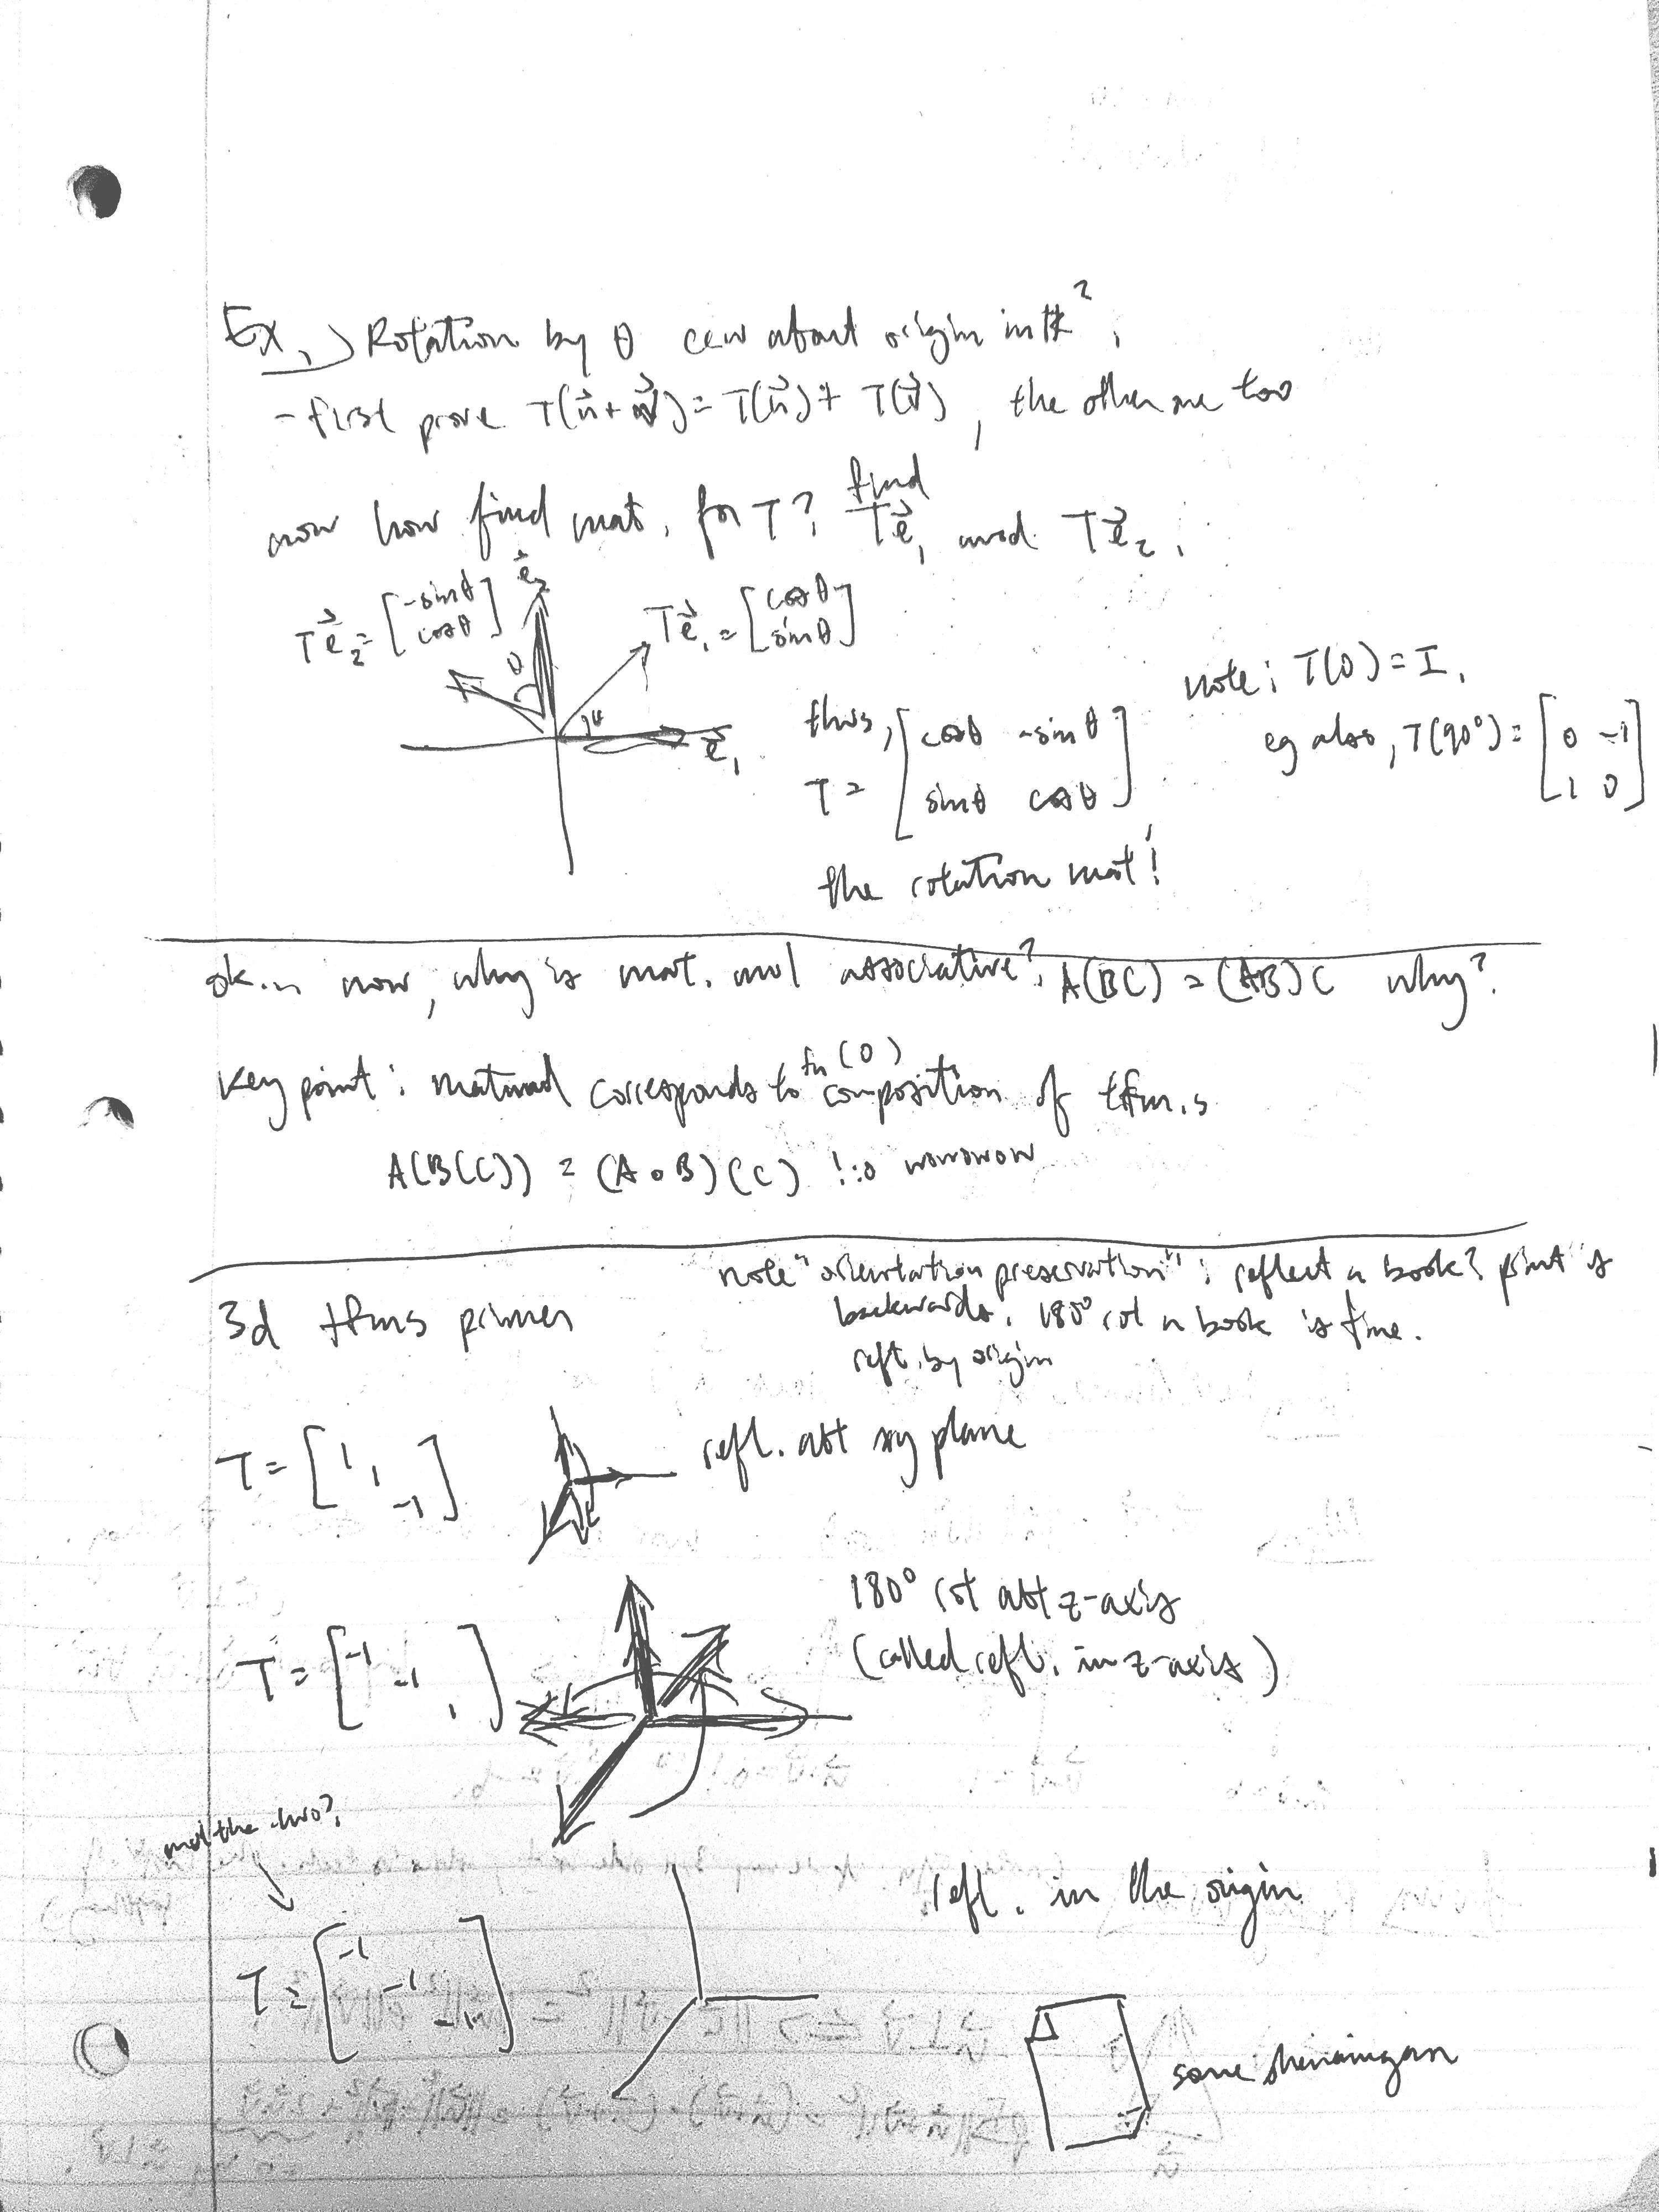 Ex.) Rotation by θ ccw about origin in ℝ².
- first prove T(u⃗ + v⃗) = T(u⃗) + T(v⃗), the other one too
now how find mat. for T? find Te⃗₁ and Te⃗₂.
Te⃗₂ = [-sinθ cosθ] e⃗₂ Te⃗₁ = [cosθ sinθ]
θ
θ
e⃗₁
thus, T = [cosθ -sinθ
sinθ cosθ]
the rotation mat!
note: T(0) = I.
eg also, T(90°) = [0 -1
1 0]
ok.. now, why is mat. mul associative? A(BC) = (AB)C why?
key point: matmul corresponds to fn (o) composition of tfm.s
A(B(C)) = (A ∘ B)(C) !:o wowowow
3d tfms primer
note "orientation preservation": reflect a book? print is
backwards. 180° rot a book is fine.
reft. by origin
T = [1 1 -1] refl. abt xy plane
T = [-1 -1 1] 180° rot abt z-axis
(called refl. in z-axis)
mul the two?
T = [-1 -1 -1] refl. in the origin
same shenanigan